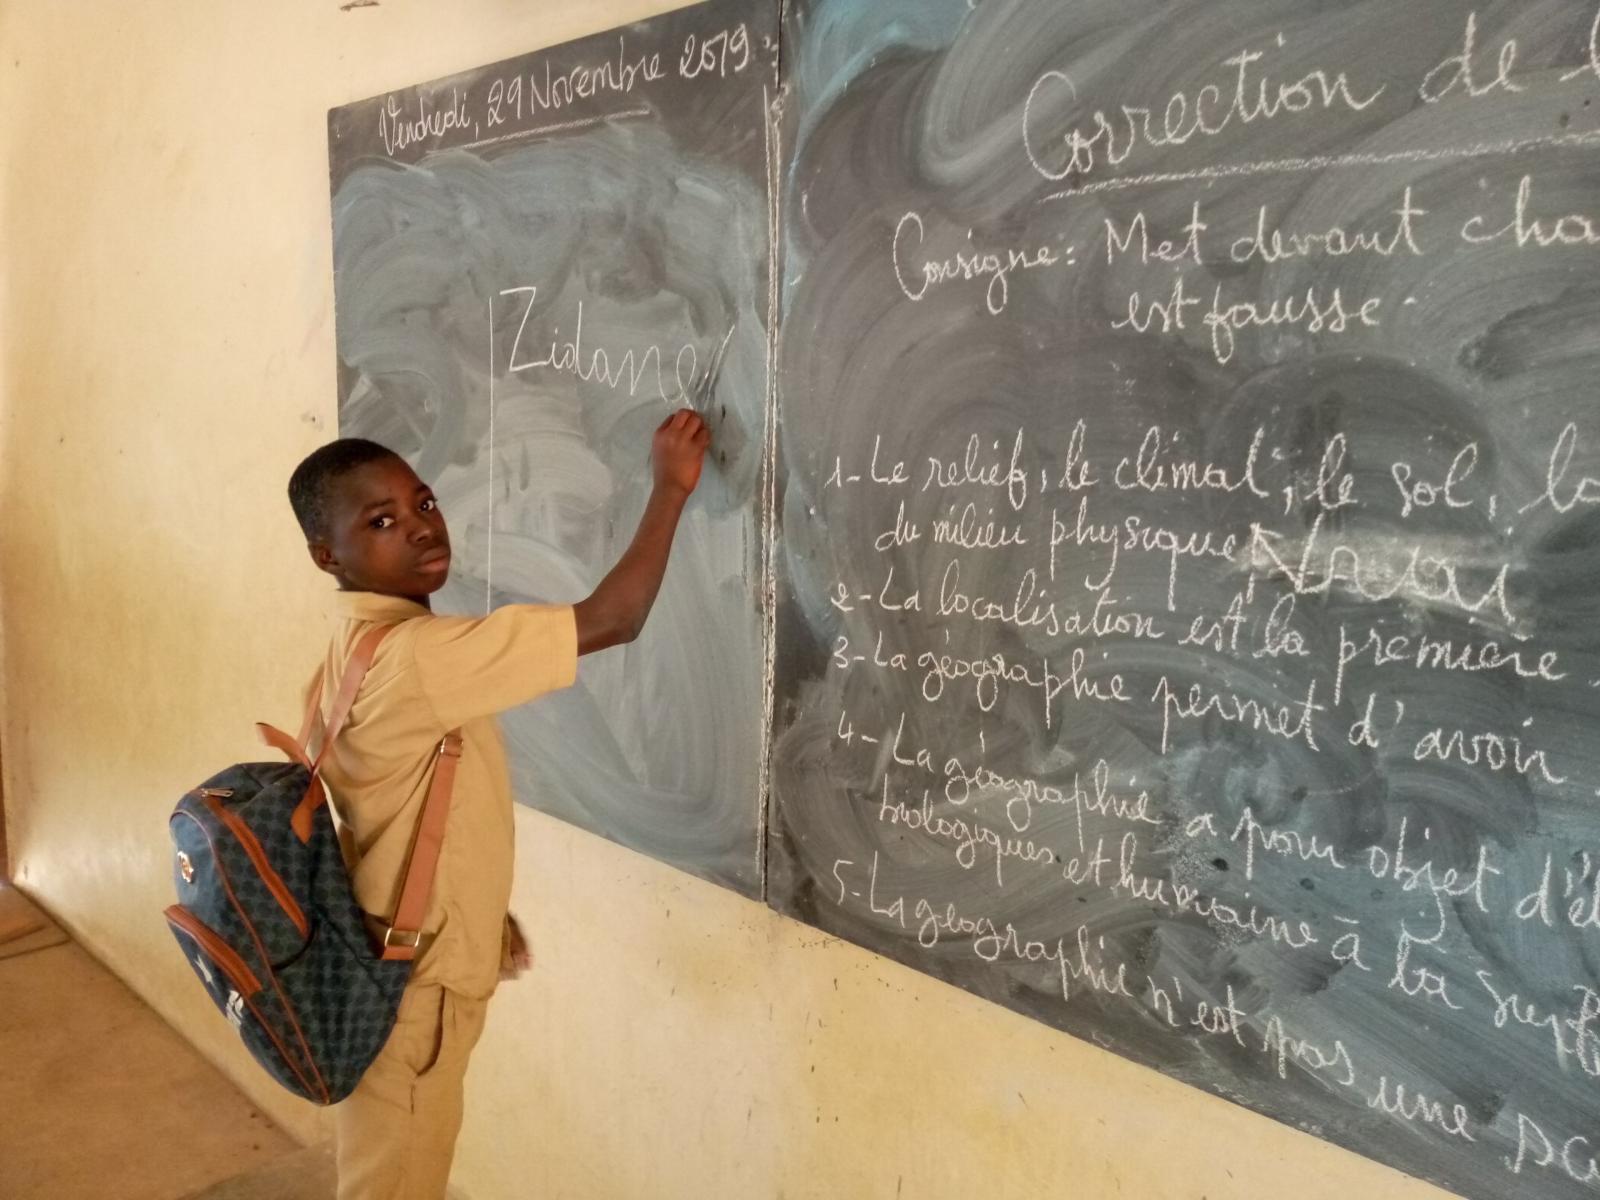 Vendredi, 29 Novembre 2019
Zidane
Correction de l
Consigne: Met devant cha
est fausse.
1- Le relief, le climat, le sol, la
du milieu physique Vrai
2- La localisation est la première
3- La géographie permet d'avoir
4- La géographie a pour objet d'ét
biologiques et humaine à la surf
5- La géographie n'est pas une sci